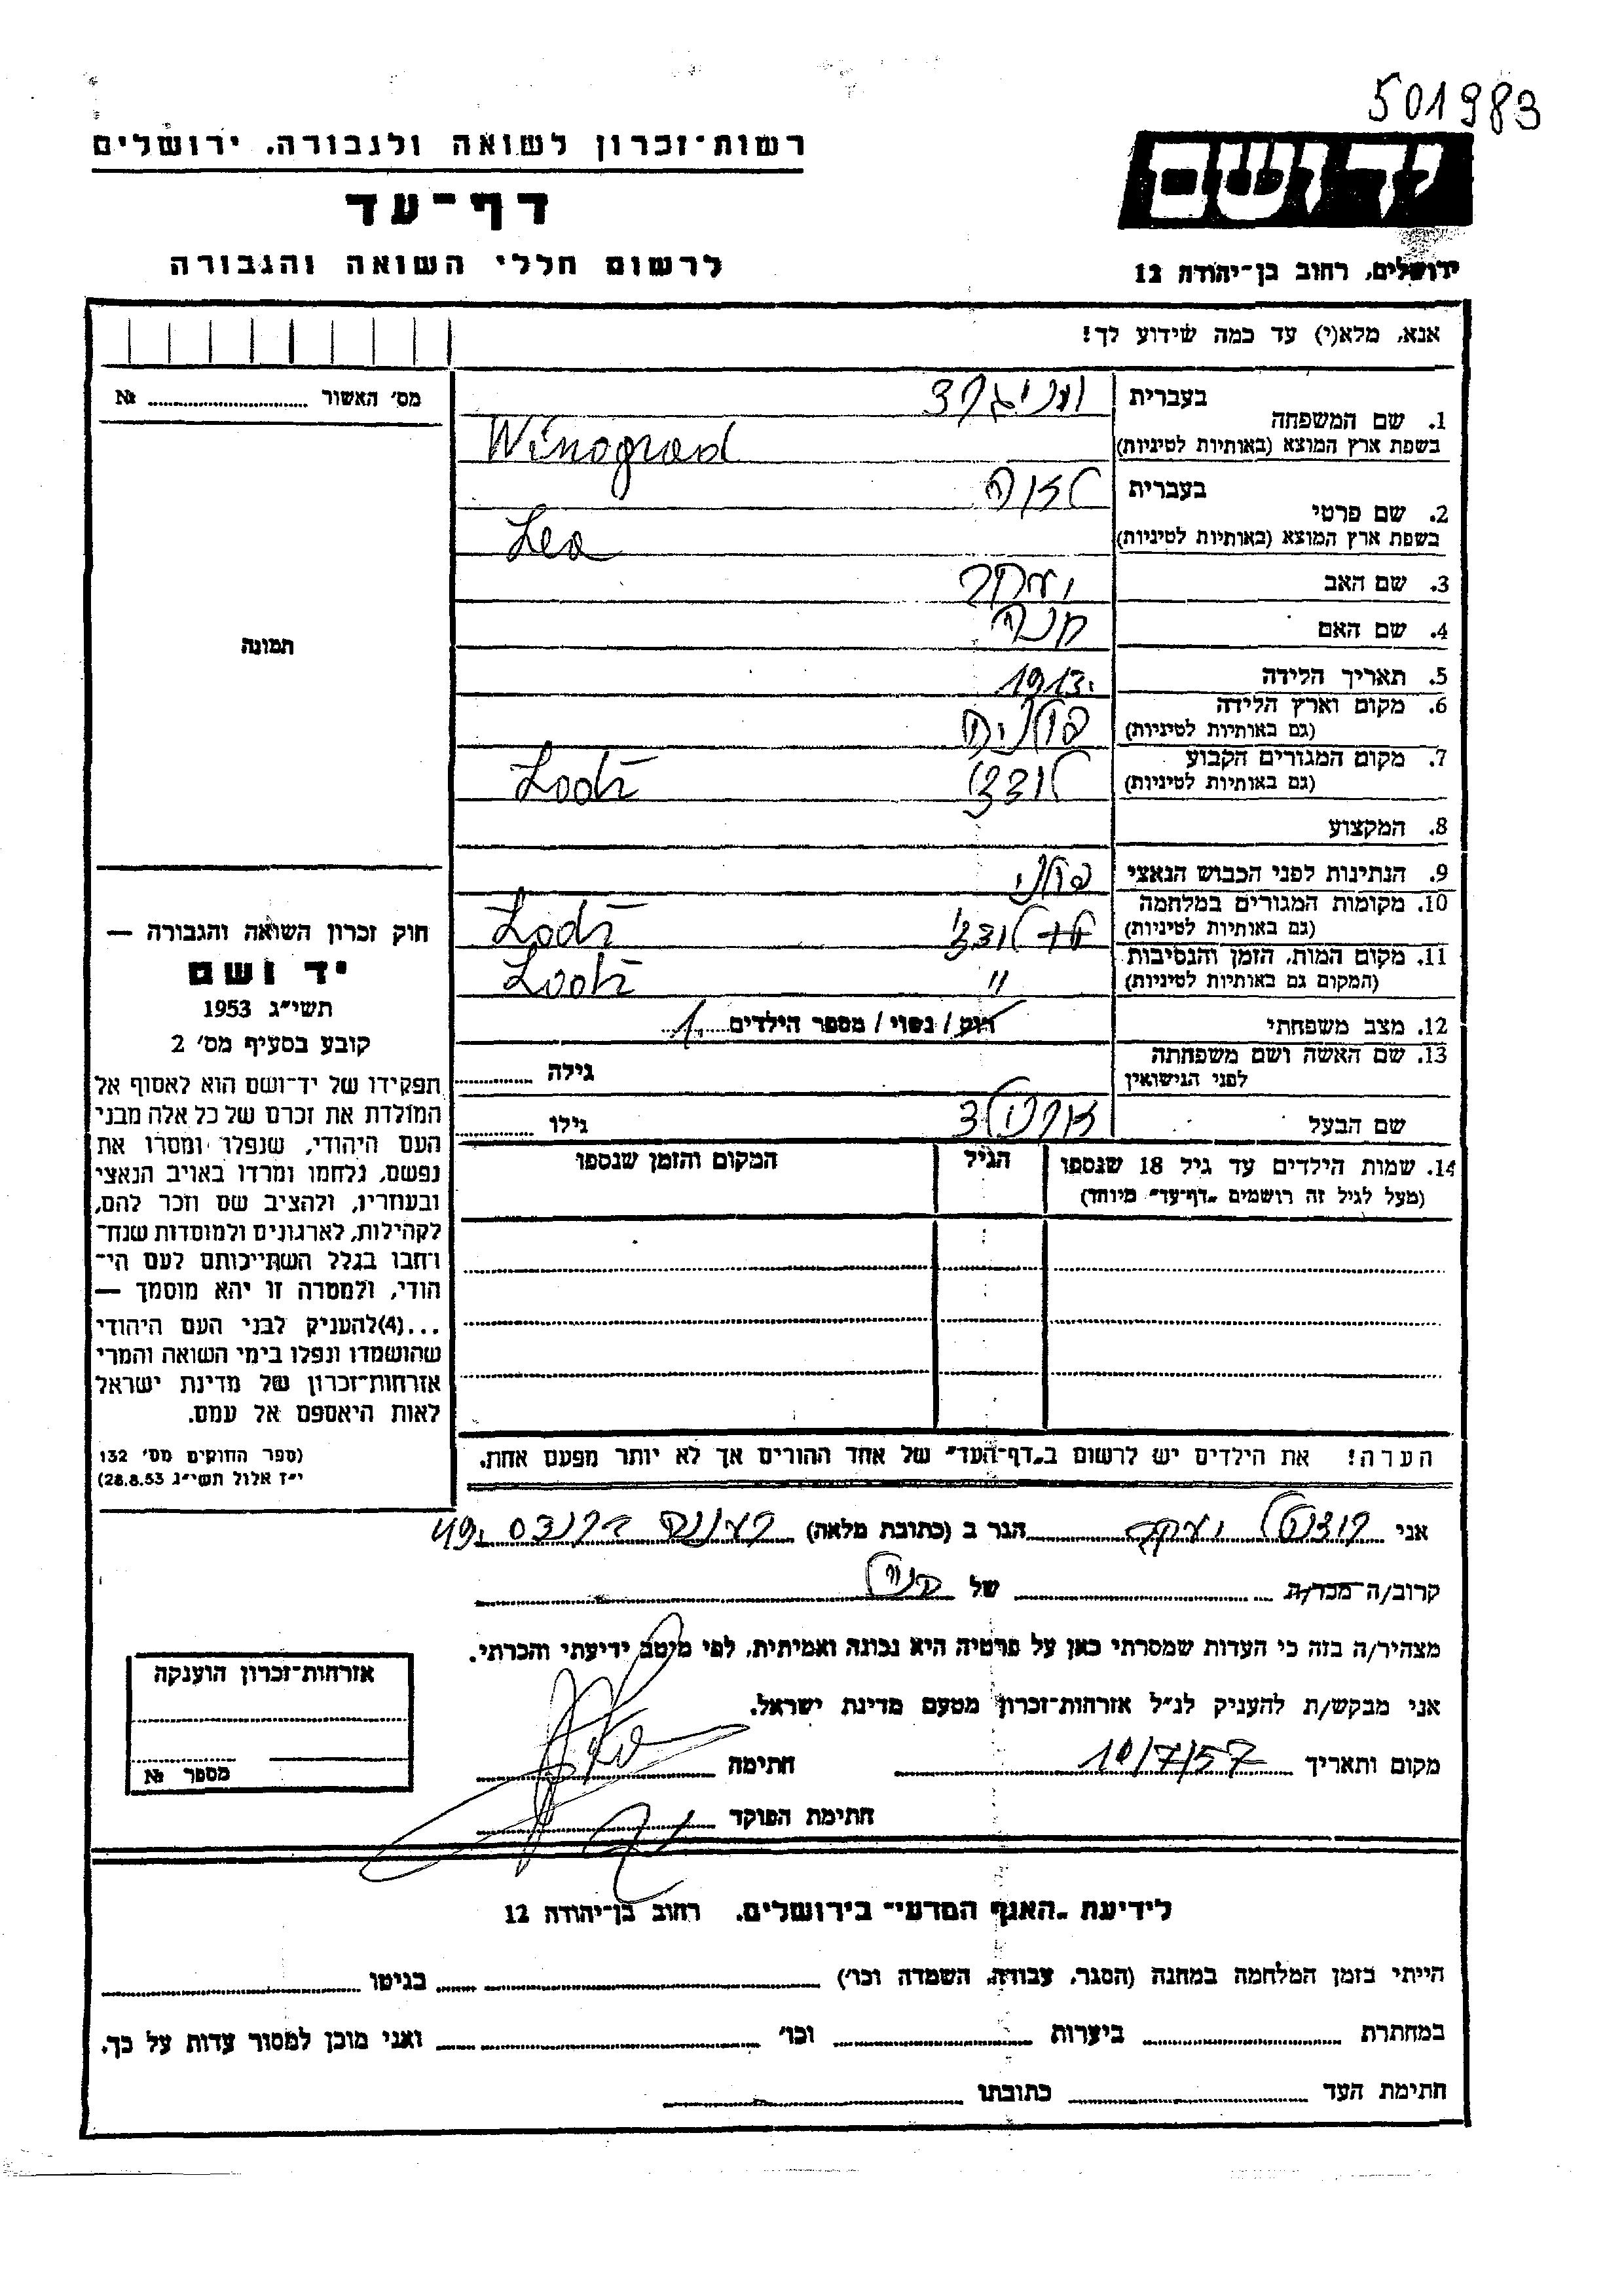 501983
רשות־זכרון לשואה ולגבורה. ירושלים
יד ושם
דף־עד
לרשום חללי השואה והגבורה
ירושלים, רחוב בן־יהודה 12
אנא, מלא(י) עד כמה שידוע לך!
מס' האשור № 
בעברית
1. שם המשפחה
בשפת ארץ המוצא (באותיות לטיניות)
Winograd
בעברית לאה
2. שם פרטי
בשפת ארץ המוצא (באותיות לטיניות)
Lea
3. שם האב יעקב
4. שם האם חנה
5. תאריך הלידה 1913
6. מקום וארץ הלידה פולניה
(גם באותיות לטיניות)
7. מקום המגורים הקבוע לודז' Lodz
(גם באותיות לטיניות)
8. המקצוע
9. הנתינות לפני הכבוש הנאצי פולני
10. מקומות המגורים במלחמה לודז' Lodz
(גם באותיות לטיניות)
11. מקום המות, הזמן והנסיבות " Lodz
(המקום גם באותיות לטיניות)
12. מצב משפחתי רוק / נשוי / מספר הילדים 1
13. שם האשה ושם משפחתה
לפני הנישואין
גילה
שם הבעל
גילו
14. שמות הילדים עד גיל 18 שנספו
(מעל לגיל זה רושמים „דף־עד" מיוחד)
הגיל
המקום והזמן שנספו
הערה! את הילדים יש לרשום ב„דף־העד" של אחד ההורים אך לא יותר מפעם אחת.
תמונה
חוק זכרון השואה והגבורה —
יד ושם
תשי"ג 1953
קובע בסעיף מס' 2
תפקידו של יד־ושם הוא לאסוף אל
המולדת את זכרם של כל אלה מבני
העם היהודי, שנפלו ומסרו את
נפשם, נלחמו ומרדו באויב הנאצי
ובעוזריו, ולהציב שם וזכר להם,
לקהילות, לארגונים ולמוסדות שנח־
רבו בגלל השתייכותם לעם הי־
הודי, ולמטרה זו יהא מוסמך —
...(4)להעניק לבני העם היהודי
שהושמדו ונפלו בימי השואה והמרי
אזרחות־זכרון של מדינת ישראל
לאות היאספם אל עמם.
(ספר החוקים מס' 132
י"ז אלול תשי"ג 28.8.53)
אני יעקב הגר ב (כתובת מלאה) רעננה 49
קרוב/ה מכר/ה של
מצהיר/ה בזה כי העדות שמסרתי כאן על פרטיה היא נכונה ואמיתית, לפי מיטב ידיעתי והכרתי.
אני מבקש/ת להעניק לנ"ל אזרחות־זכרון מטעם מדינת ישראל.
מקום ותאריך 10/7/57 חתימה
חתימת הפוקד
אזרחות־זכרון הוענקה
מספר №
לידיעת „האגף המדעי" בירושלים. רחוב בן־יהודה 12
הייתי בזמן המלחמה במחנה (הסגר, עבודה, השמדה וכו') בגיטו
במחתרת ביערות וכו' ואני מוכן למסור עדות על כך.
חתימת העד כתובתו